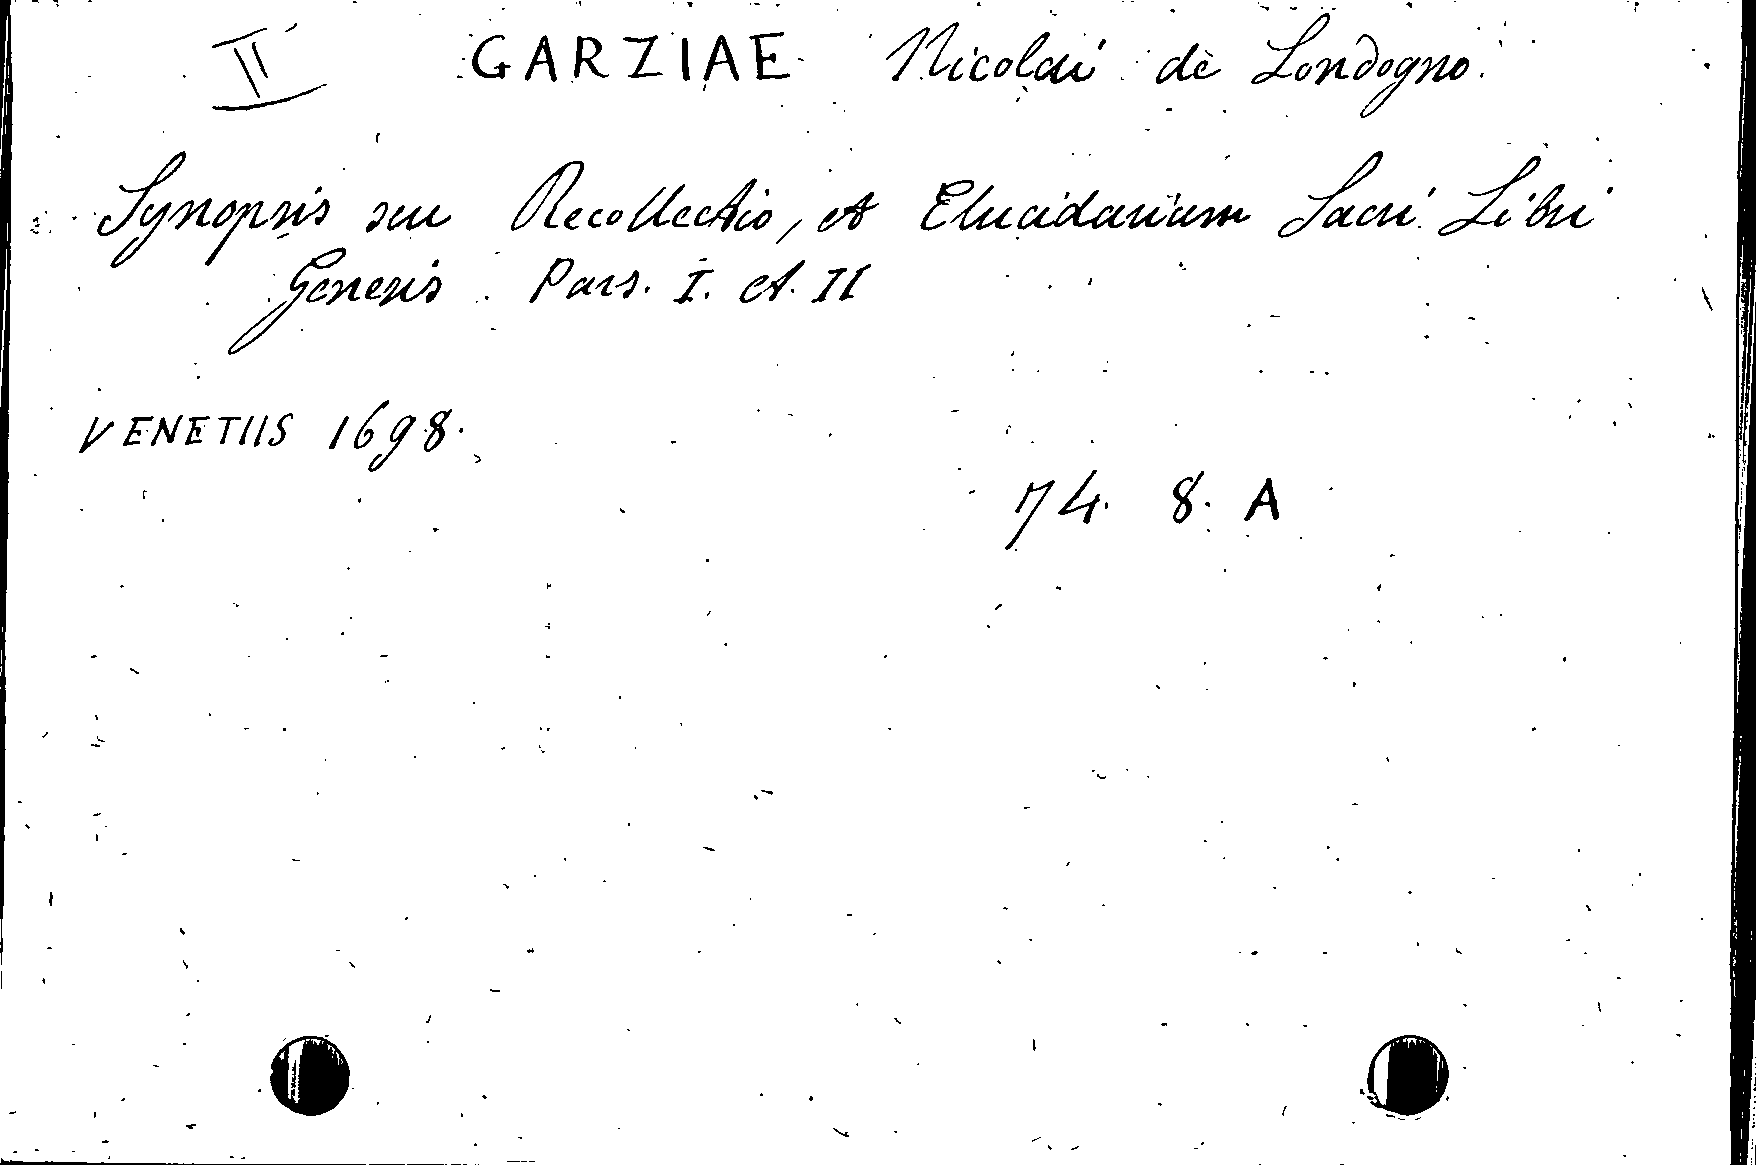 II GARZIAE Nicolai de Londogno.
Synopsis seu Recollectio, et Elucidarium Sacri Libri
Genesis Pars. I. et. II
VENETIIS 1698.
74. 8. A